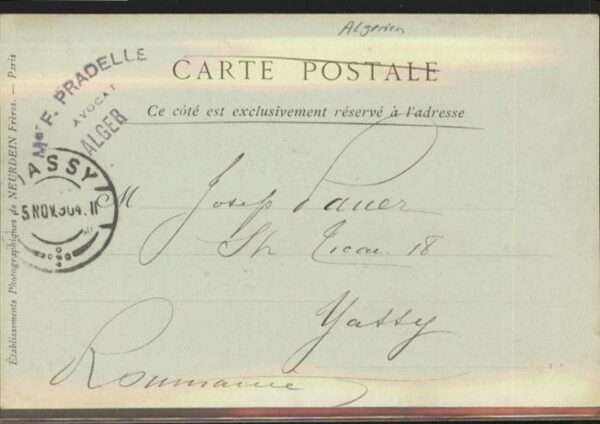 Algerien
CARTE POSTALE
Ce côté est exclusivement réservé à l'adresse
Me F. PRADELLE
AVOCAT
ALGER
JASSY
5 NOV. 904. 11
M Josef Pauer
Str 18
Yassy
Roumanie
Établissements Photographiques de NEURDEIN Frères. — Paris